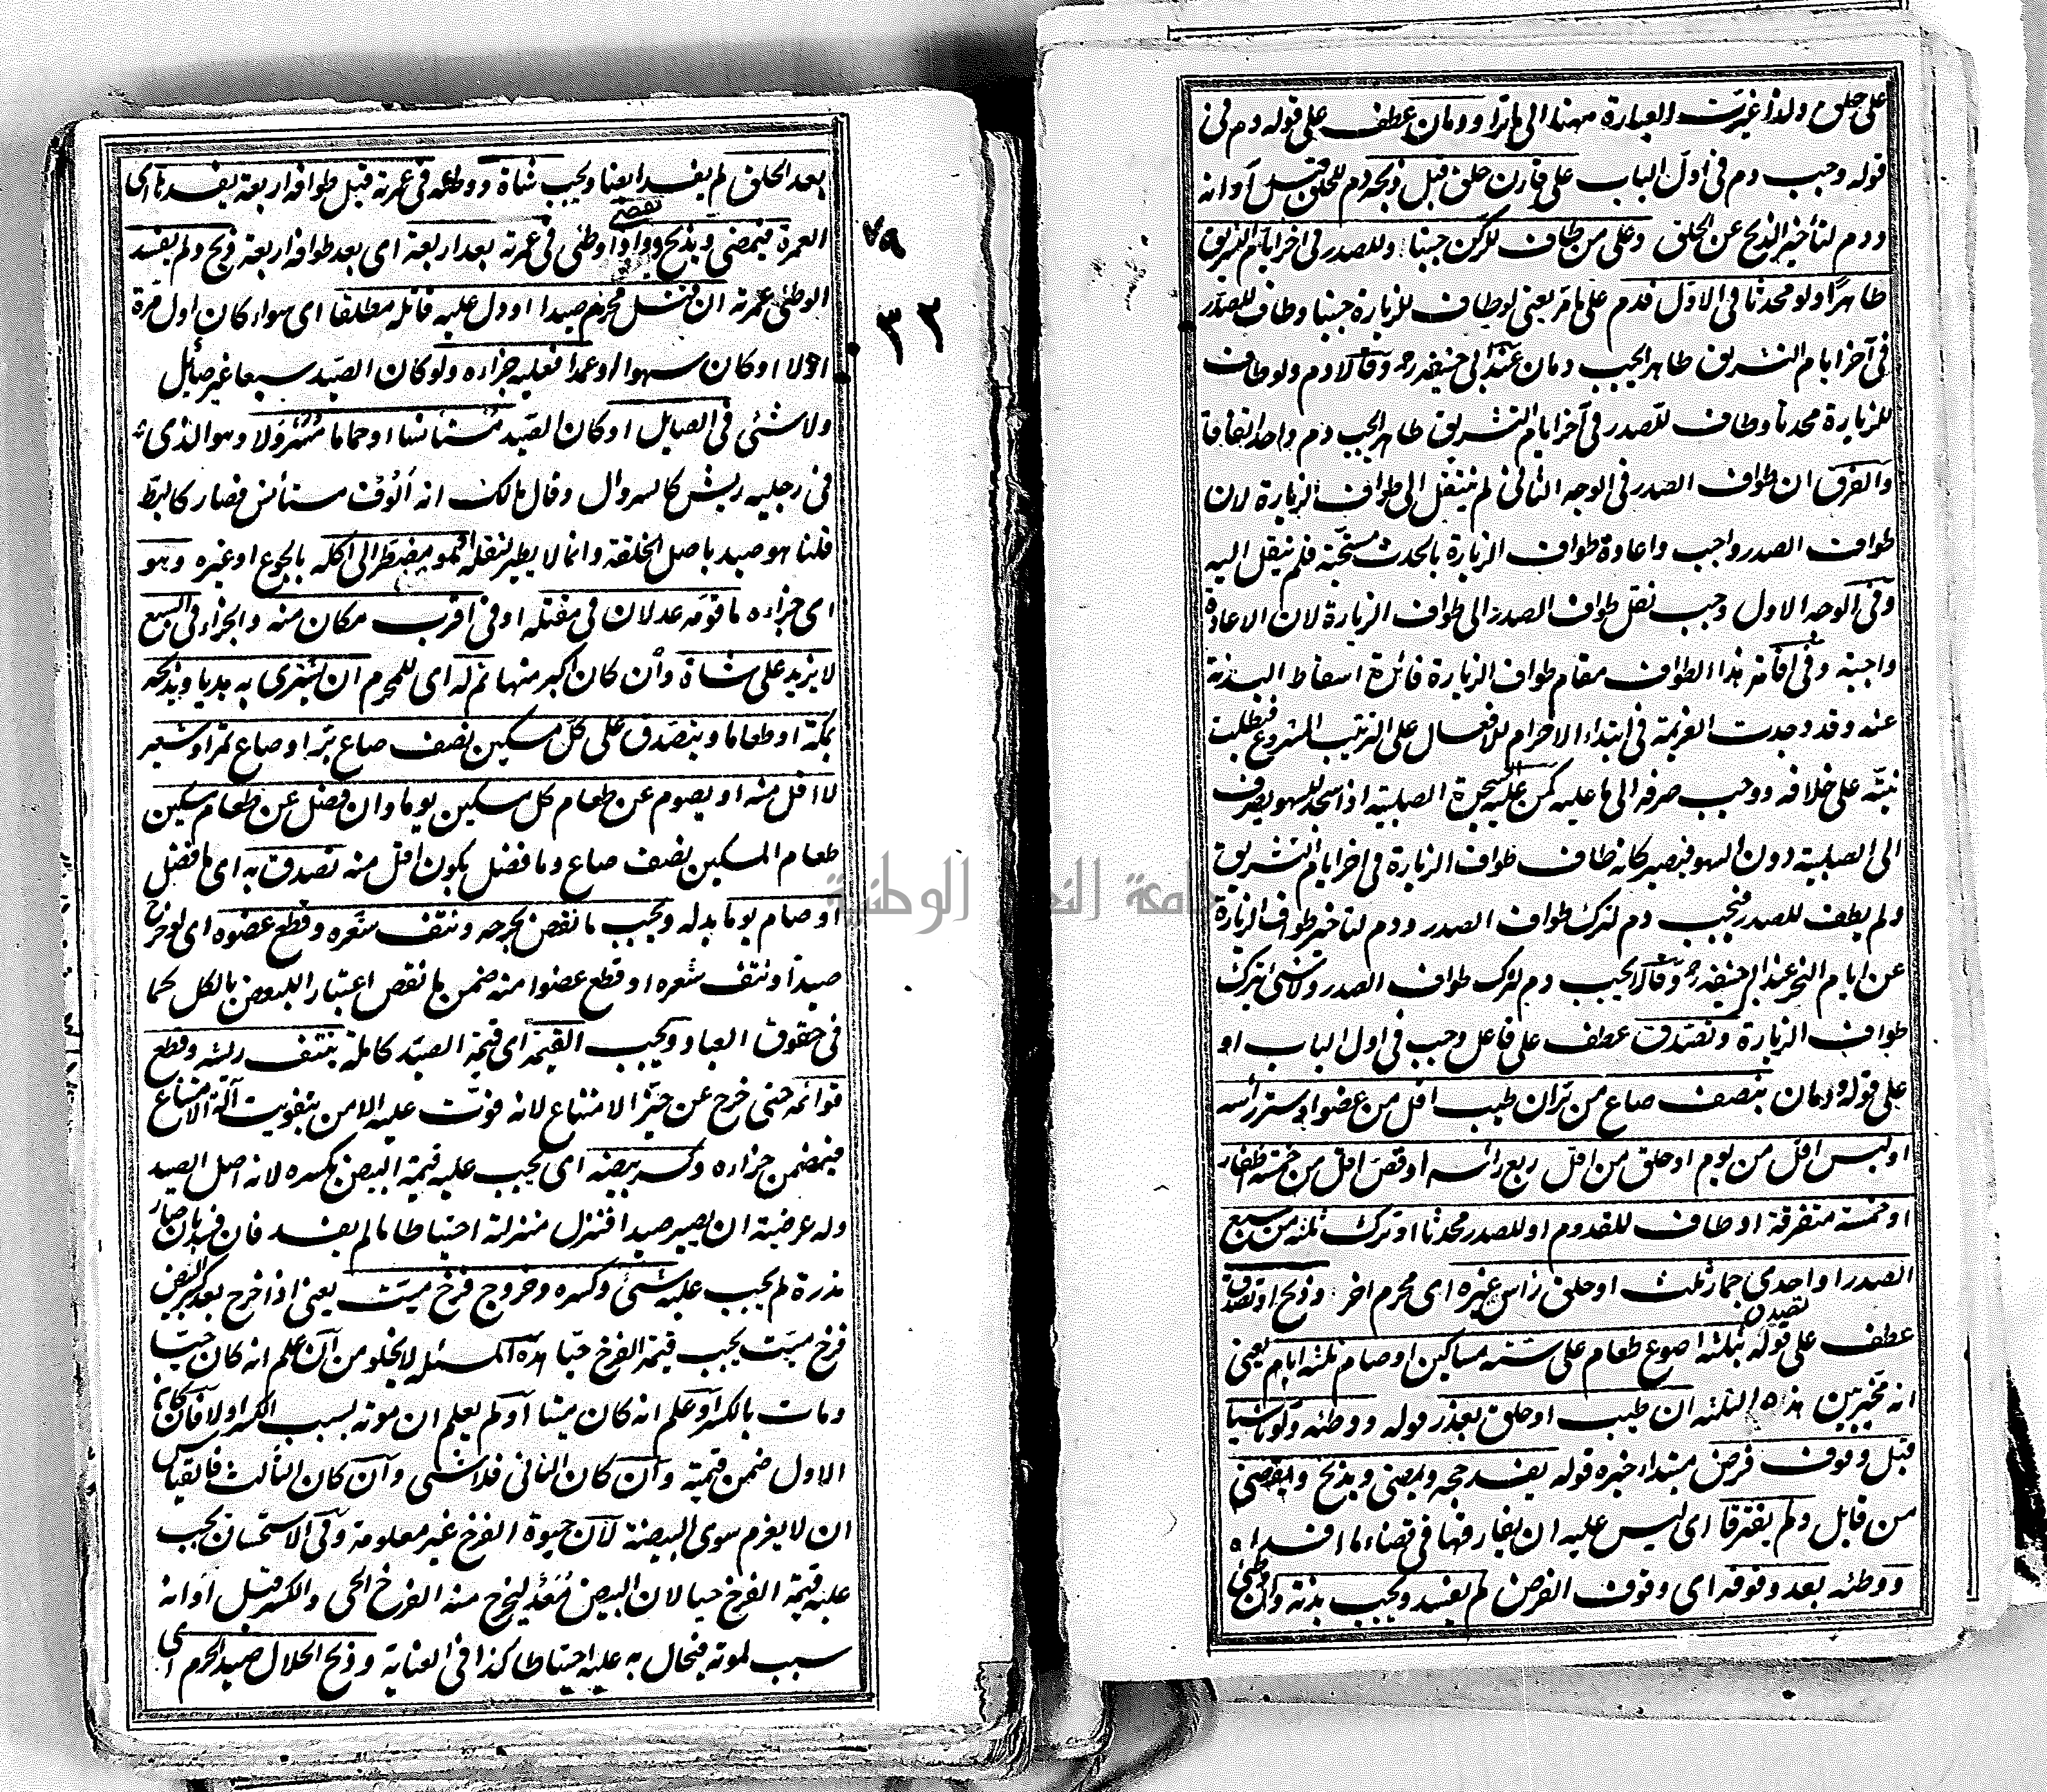 على حلق ولذا غيرت العبارة مهنا الى ما ترا ودمان عطف على قوله دم في
قوله وجب دم في اول الباب على قارن حلق قبل ذبحه دم للحلق قبل آوانه
ودم لتأخير الذبح عن الحلق وعلى من طاف للركن جنبا وللصدر في اخر ايام التشريق
طاهرا ولو محدثا في الاول فدم على ما مر يعني لو طاف للزيارة جنبا وطاف للصدر
في آخر ايام التشريق طاهرا يجب دمان عند ابي حنيفه رح وقالا دم ولو طاف
للزيارة محدثا وطاف للصدر في آخر ايام التشريق طاهرا يجب دم واحد اتفاقا
والفرق ان طواف الصدر في الوجه الثاني لم ينتقل الى طواف الزيارة لان
طواف الصدر واجب واعادة طواف الزيارة بالحدث مستحبة فلم ينقل اليه
وفي الوجه الاول وجب نقل طواف الصدر الى طواف الزيارة لان الاعادة
واجبة وفي اقامة هذا الطواف مقام طواف الزيارة فائدة اسقاط البدنة
عنه وقد وجدت العزيمة في ابتداء الاحرام للافعال على الترتيب المشروع فبطلت
نيته على خلافه ووجب صرفه الى ما عليه كمن عليه السجدة الصلبية اذا سجد للسهو يصرف
الى الصلبية دون السهو فيصير كانه طاف طواف الزيارة في اخر ايام التشريق
ولم يطف للصدر فيجب دم لترك طواف الصدر ودم لتأخير طواف الزيارة
عن ايام النحر عند ابي حنيفه رح وقالا يجب دم لترك طواف الصدر ولا شئ لترك
طواف الزيارة وتصدق عطف على فاعل وجب في اول الباب او
على قوله ودمان بنصف صاع من بر ان طيب اقل من عضو او ستر رأسه
او لبس اقل من يوم او حلق من اقل ربع راسه او قص اقل من خمسة اظفار
او خمسة متفرقة او طاف للقدوم او للصدر محدثا او ترك ثلثة من سبع
الصدر او احدى جمار ثلث او حلق راس غيره اى محرم اخر وذبح او تصدق
عطف على قوله تصدق بثلثة اصوع طعام على ستة مساكين او صام ثلثة ايام يعني
انه مخير بين هذه الثلثة ان طيب او حلق بعذر قوله ووطئه ولو ناسيا
قبل وقوف فرض مبتداء خبره قوله يفسد حجه ويمضى ويذبح ويقضى
من قابل ولم يفترقا اى ليس عليه ان يفارقها في قضاء ما افسداه
ووطئه بعد وقوفه اى وقوف الفرض لم يفسد ويجب بدنة وان وطئ
بعد الحلق لم يفسد ايضا ويجب شاة ووطئه في عمرته قبل طوافه اربعة يفسدها اى
العمرة فيمضي ويذبح ويقضي واذا وطئ في عمرته بعد اربعة اى بعد طوافه اربعة ذبح ولم يفسد
٧٩
٣٢
الوطئ عمرته ان قتل محرم صيدا او دل عليه قاتله مطلقا اى سواء كان اول مرة
اولا او كان سهوا او عمدا فعليه جزاؤه ولو كان الصيد سبعا غير صائل
ولا شئ في الصايل او كان الصيد مستأنسا او حماما مسرولا وهو الذى
في رجليه ريش كالسروال وقال مالك انه الوف مستأنس فصار كالبط
قلنا هو صيد باصل الخلقة وانما لا يطير لثقله او هو مضطر الى اكله بالجوع او غيره وهو
اى جزاءه ما قومه عدلان في مقتله او في اقرب مكان منه والجزاء في السبع
لا يزيد على شاة وان كان اكبر منها ثم له اى للمحرم ان يشترى به هديا ويذبحه
بمكة او طعاما ويتصدق على كل مسكين نصف صاع بر او صاع تمر او شعير
لا اقل منه او يصوم عن طعام كل مسكين يوما وان فضل عن طعام مسكين
طعام المسكين نصف صاع وما فضل يكون اقل منه تصدق به اى ما فضل
او صام يوما بدله ويجب ما نقص بجرحه ونتف شعره وقطع عضوه اى لو جرح
صيدا او نتف شعره او قطع عضوا منه ضمن ما نقص اعتبار البعض بالكل كما
في حقوق العباد ويجب القيمة اى قيمة الصيد كاملة بنتف ريشه وقطع
قوائمه حتى خرج عن حيز الامتناع لانه فوت عليه الامن بتفويت آلة الامتناع
فيضمن جزاره وكسر بيضه اى يجب عليه قيمة البيض بكسره لانه اصل الصيد
وله عرضية ان يصير صيدا فنزل منزلة احتياطا ما لم يفسد فان فسد بان صار
مذرة لم يجب عليه شئ وكسره وخروج فرخ ميت يعني اذا خرج بعد كسر البيض
فرخ ميت يجب قيمة الفرخ حيا هذه المسئلة لا يخلو من ان علم انه كان حيا
ومات بالكسر او علم انه كان ميتا او لم يعلم ان موته بسبب الكسر اولا فان كان
الاول ضمن قيمته وان كان الثاني فلا شئ وان كان الثالث فالقياس
ان لا يغرم سوى البيضة لان حيوة الفرخ غير معلومة وفي الاستحسان يجب
عليه قيمة الفرخ حيا لان البيض معد ليخرج منه الفرخ الحى والكسر قبل اوانه
سبب لموته فيحال به عليه احتياطا كذا في العناية وذبح الحلال صيد الحرم اى
جامعة النجاح الوطنية